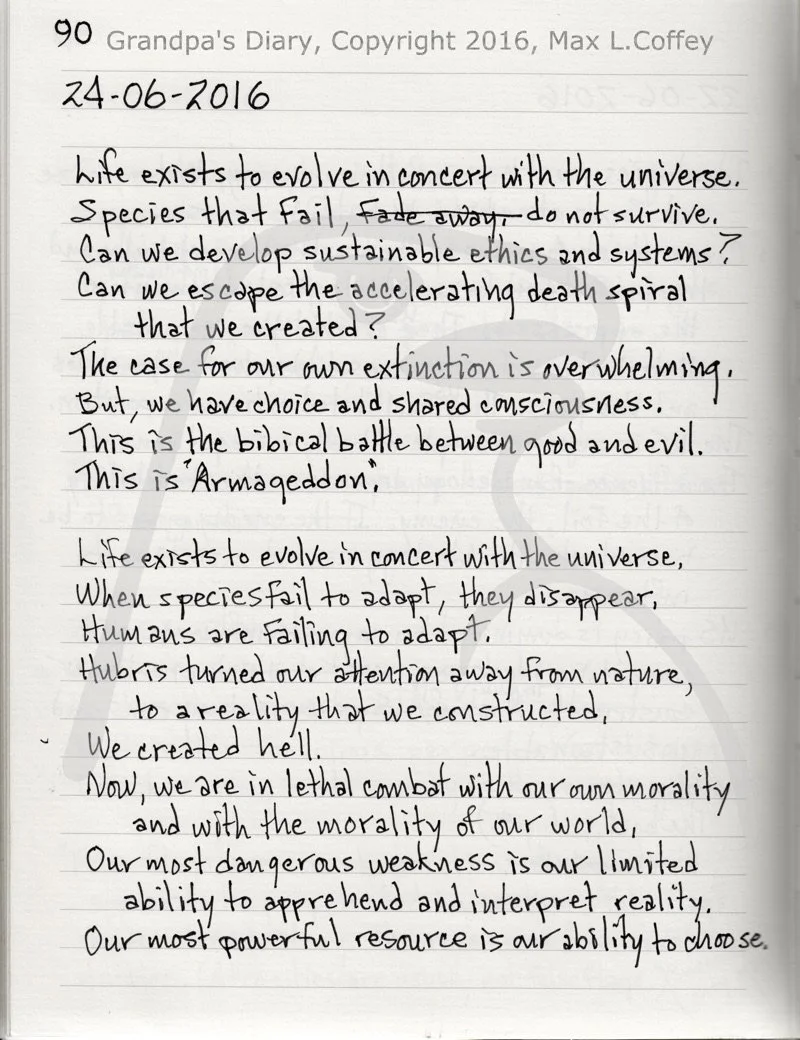 90 Grandpa's Diary, Copyright 2016, Max L.Coffey
24-06-2016
Life exists to evolve in concert with the universe.
Species that fail, ~~fade away,~~ do not survive.
Can we develop sustainable ethics and systems?
Can we escape the accelerating death spiral
that we created?
The case for our own extinction is overwhelming.
But, we have choice and shared consciousness.
This is the bibical battle between good and evil.
This is "Armageddon".
Life exists to evolve in concert with the universe,
When species fail to adapt, they disappear.
Humans are failing to adapt.
Hubris turned our attention away from nature,
to a reality that we constructed,
We created hell.
Now, we are in lethal combat with our own morality
and with the morality of our world,
Our most dangerous weakness is our limited
ability to apprehend and interpret reality.
Our most powerful resource is our ability to choose.